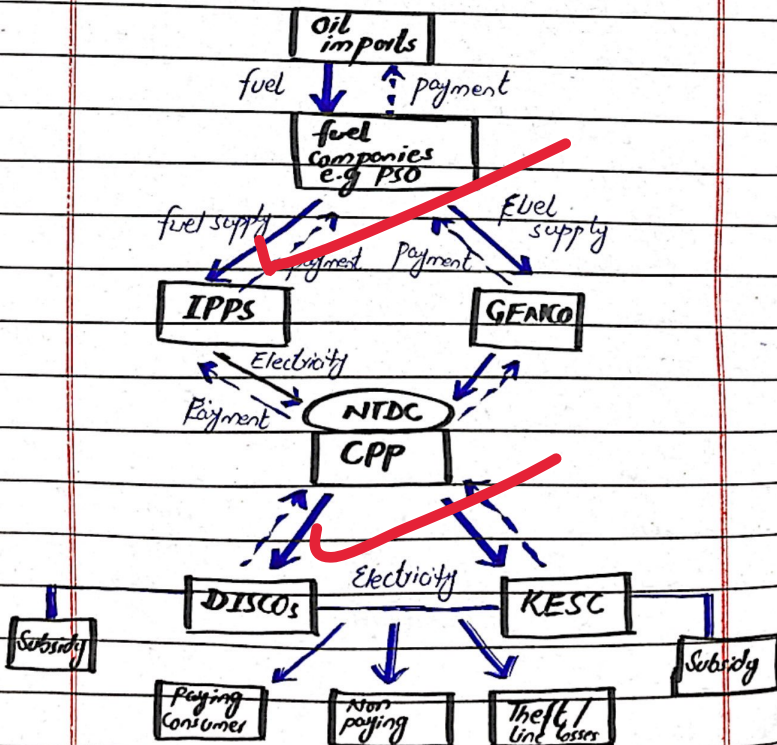 Oil
imports
fuel
payment
fuel
companies
e.g PSO
fuel supply
payment
Payment
Fuel
supply
IPPs
GENCO
Electricity
Payment
NTDC
CPP
Electricity
DISCOs
KESC
Subsidy
Subsidy
Paying
Consumer
Non
paying
Theft/
Line losses